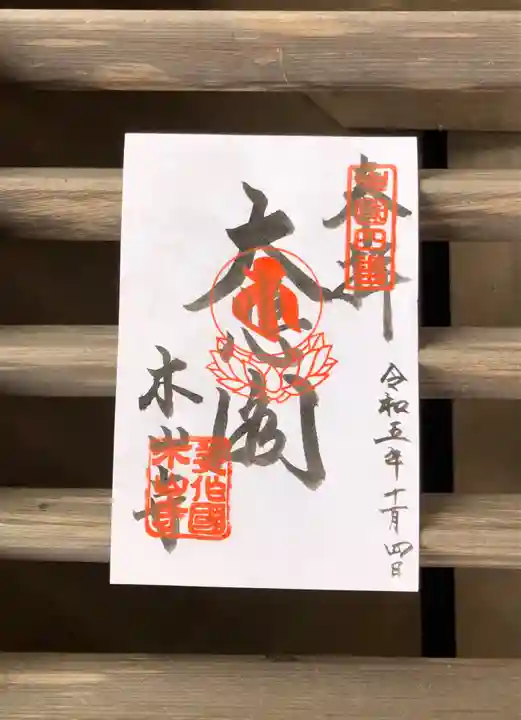 奉拝
令和五年十一月四日
大悲閣
木山寺
美作國
木山寺